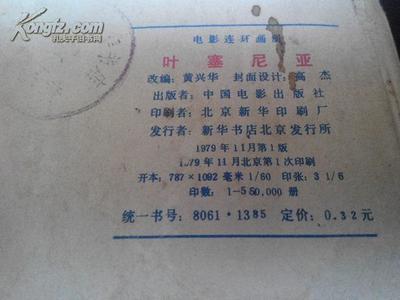 孔夫子旧书网
Kongfz.com
电影连环画册
叶塞尼亚
改编：黄兴华 封面设计：高杰
出版者：中国电影出版社
印刷者：北京新华印刷厂
发行者：新华书店北京发行所
1979年11月第1版
1979年11月北京第1次印刷
开本：787×1092毫米1/60 印张：3 1/6
印数：1—550,000册
统一书号：8061·1385 定价：0.32元